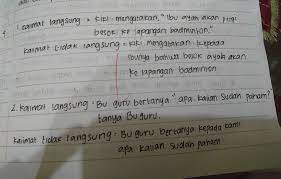 1. Kalimat langsung : Kiki mengatakan, "Ibu ayah akan pergi
besok ke lapangan badminton."
Kalimat tidak langsung : Kiki mengatakan kepada
ibunya bahwa besok ayah akan
ke lapangan badminton
2. Kalimat langsung : Bu guru bertanya " apa kalian sudah paham?
tanya Bu guru.
Kalimat tidak langsung : Bu guru bertanya kepada kami
apa kalian sudah paham